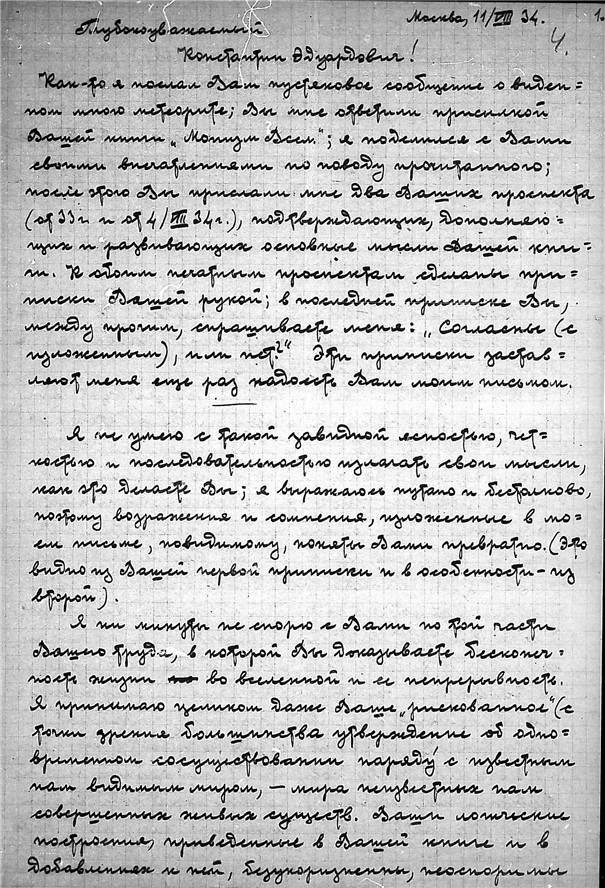 Москва, 11/VIII 34. 1.
4.
Глубокоуважаемый
Константин Эдуардович!
Как-то я послал Вам пустяковое сообщение о виден-
ном мною метеорите; Вы мне ответили присылкой
Вашей книги „Монизм Всел."; я поделился с Вами
своими впечатлениями по поводу прочитанного;
после этого Вы прислали мне два Ваших проспекта
(от 33 г. и от 4/VIII 34 г.), подтверждающих, дополняю-
щих и развивающих основные мысли Вашей кни-
ги. К обоим печатным проспектам сделаны при-
писки Вашей рукой; в последней приписке Вы,
между прочим, спрашиваете меня: „Согласны (с
изложенным), или нет?" Эти приписки застав-
ляют меня еще раз надоесть Вам моим письмом.
Я не умею с такой завидной ясностью, чет-
костью и последовательностью излагать свои мысли,
как это делаете Вы; я выражаюсь путано и бестолково,
поэтому возражения и сомнения, изложенные в мо-
ем письме, повидимому, поняты Вами превратно. (Это
видно из Вашей первой приписки и в особенности – из
второй).
Я ни минуты не спорю с Вами по той части
Вашего труда, в которой Вы доказываете бесконеч-
ность жизни во вселенной и ее непрерывность.
Я принимаю целиком даже Ваше „рискованное" (с
точки зрения большинства утверждение об одно-
временном сосуществовании наряду с известным
нам видимым миром, – мира неизвестных нам
совершенных живых существ. Ваши логические
построения, приведенные в Вашей книге и в
добавлениях к ней, безукоризненны, неоспоримы